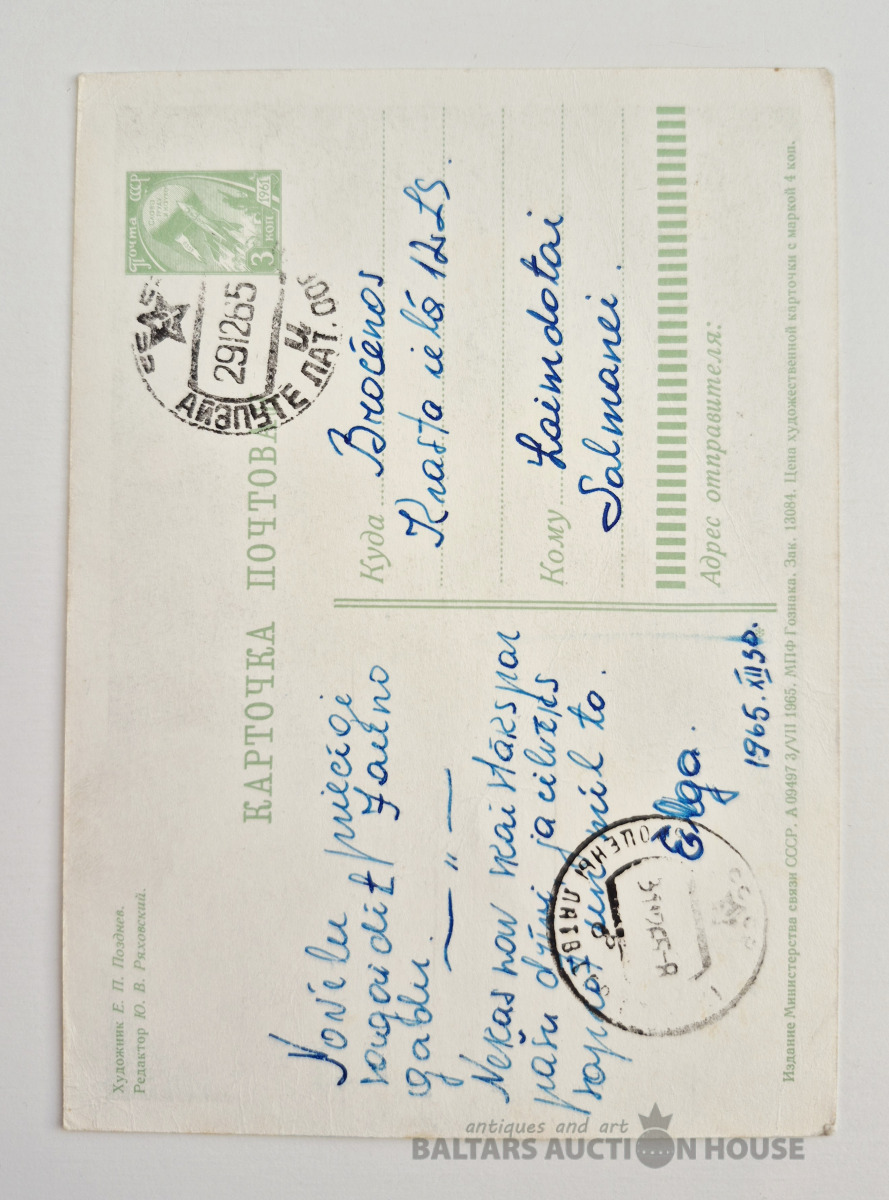 Художник Е. П. Позднев.
Редактор Ю. В. Ряховский.
КАРТОЧКА ПОЧТОВА
Почта СССР
1961
3 коп
29 12 65
АЙЗПУТЕ ЛАТ.
Ц
Novēlu priecīgi
sagaidīt Jauno
gadu.
— „ —
Nekas nav skaistāks par
pašu dzīvi, ja cilvēks
saprot un mīl to.
Elga.
1965. XII 30.
Куда Brocēnos
Krasta ielā 12
Кому Laimdotai
Salmanei.
Адрес отправителя:
Издание Министерства связи СССР. А 09497 3/VII 1965. МПФ Гознака. Зак. 13084. Цена художественной карточки с маркой 4 коп.
antiques and art
BALTARS AUCTION HOUSE